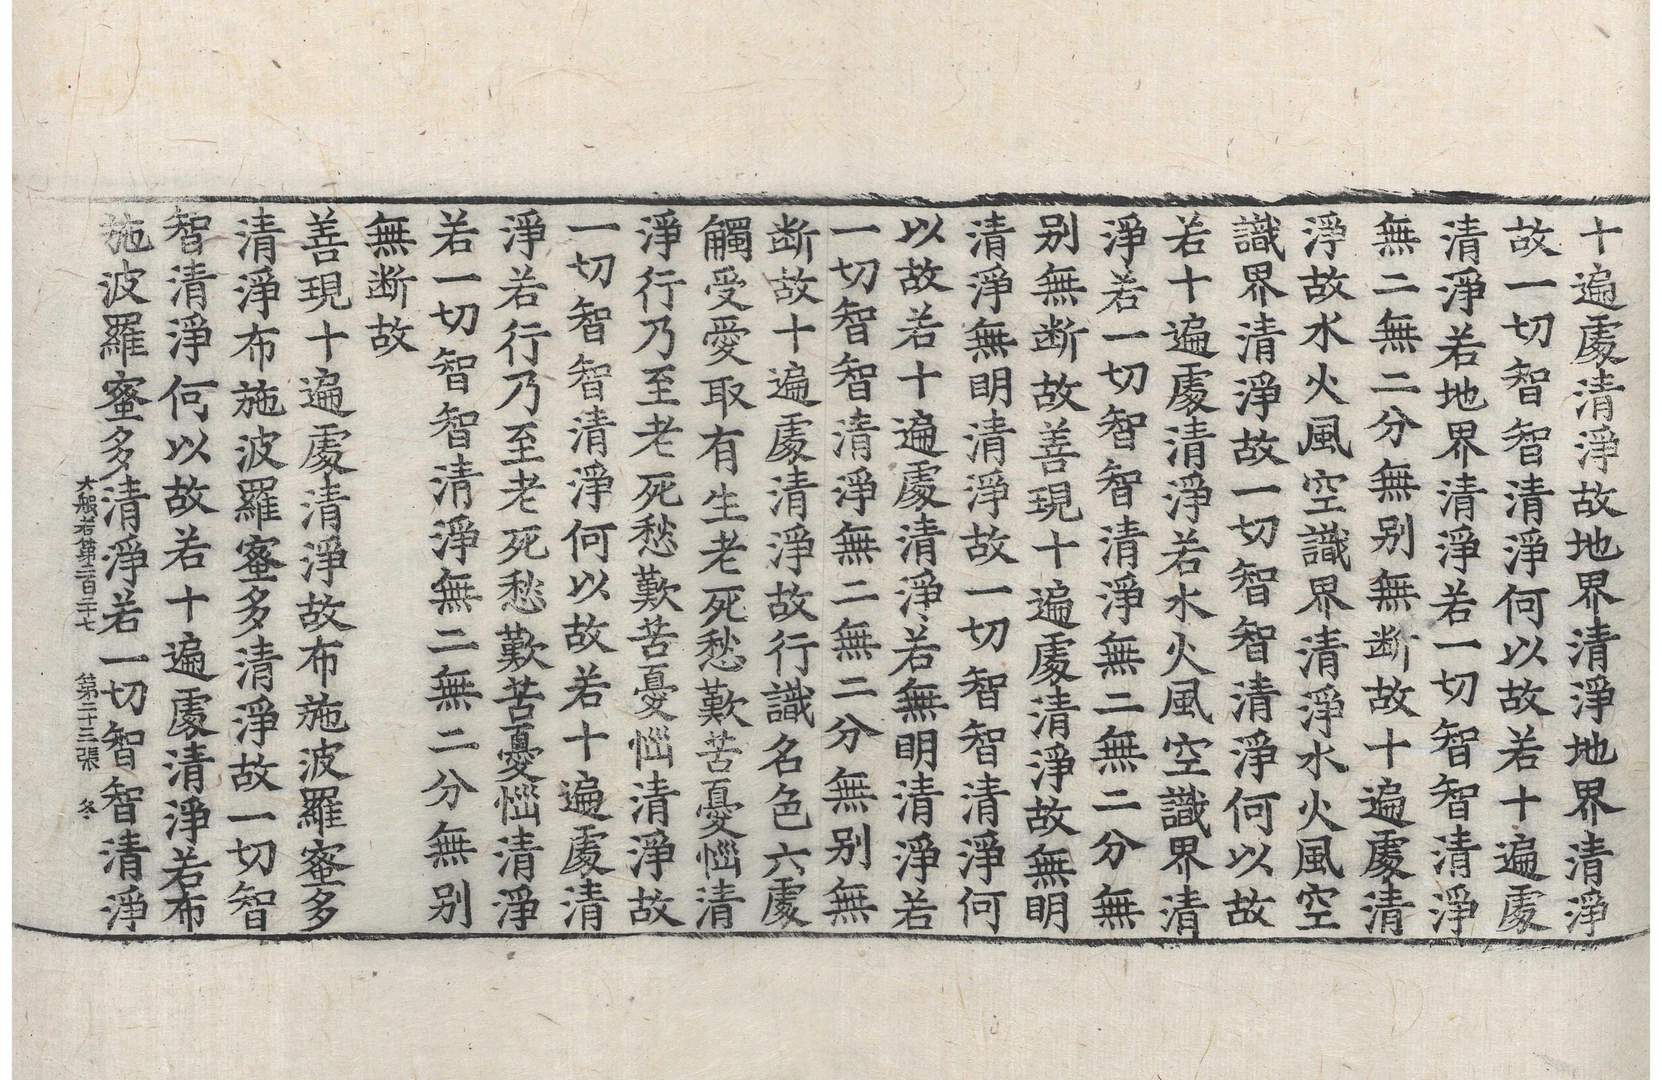 十遍處清淨故地界清淨地界清淨
故一切智智清淨何以故若十遍處
清淨若地界清淨若一切智智清淨
無二無二分無别無断故十遍處清
淨故水火風空識界清淨水火風空
識界清淨故一切智智清淨何以故
若十遍處清淨若水火風空識界清
淨若一切智智清淨無二無二分無
别無断故善現十遍處清淨故無明
清淨無明清淨故一切智智清淨何
以故若十遍處清淨若無明清淨若
一切智智清淨無二無二分無别無
断故十遍處清淨故行識名色六處
觸受愛取有生老死愁歎苦憂惱清
淨行乃至老死愁歎苦憂惱清淨故
一切智智清淨何以故若十遍處清
淨若行乃至老死愁歎苦憂惱清淨
若一切智智清淨無二無二分無别
無断故
善現十遍處清淨故布施波羅蜜多
清淨布施波羅蜜多清淨故一切智
智清淨何以故若十遍處清淨若布
施波羅蜜多清淨若一切智智清淨
大般若第二百二十七 第二十三張 冬